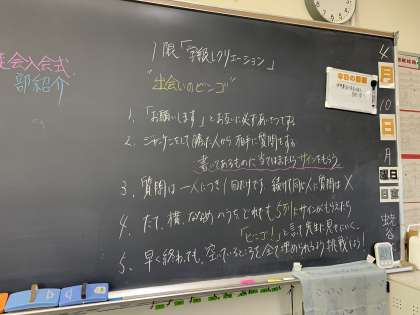 会入会式
部紹介
1限「学級レクリエーション」
"出会いのビンゴ"
1. 「お願いします」とお互いに必ずあいさつする
2. ジャンケンをして勝った人から相手に質問をする
書いてあるものに当てはまったらサインをもらう
3. 質問は一人につき1回だけです 続けて同じ人に質問は×
4. たて、横、ななめのうち、どれでも5列にサインがもらえたら
「ビンゴ！」と言って先生に見せにいく。
5. 早く終わっても、空いているところを全て埋められるよう挑戦しよう！
4
月
10
日
月
曜日
日直